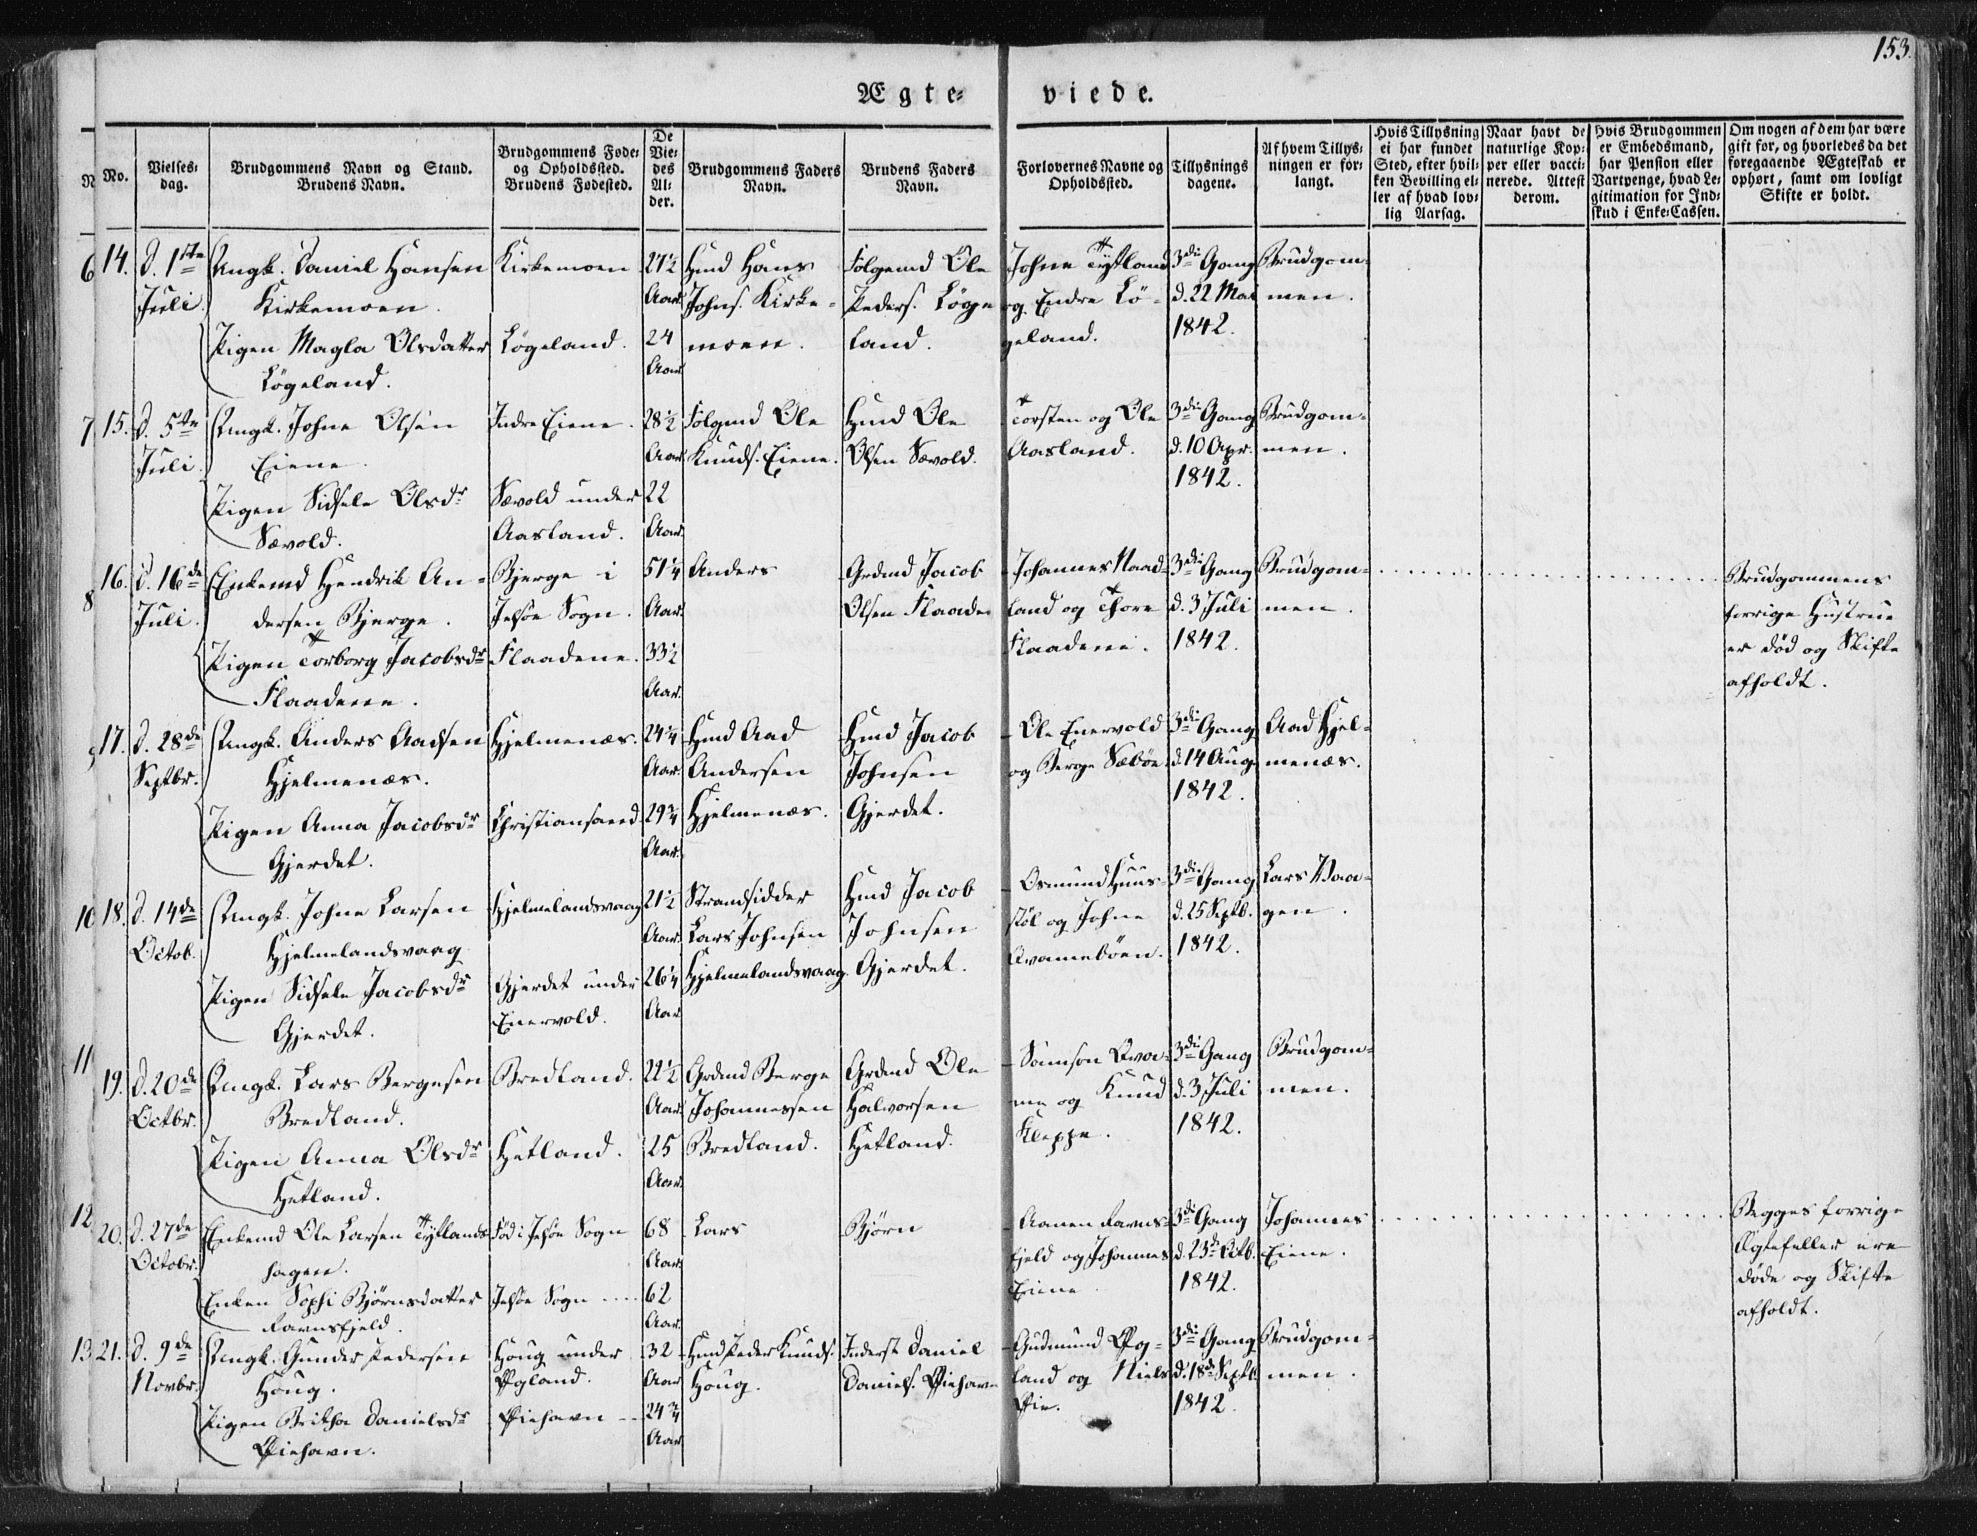 153.
Ægte- viede.
No.
Vielses-
dag.
Brudgommens Navn og Stand.
Brudens Navn.
Brudgommens Føde-
og Opholdssted.
Brudens Fødested.
De
Vie-
des
Al-
der.
Brudgommens Faders
Navn.
Brudens Faders
Navn.
Forlovernes Navne og
Opholdssted.
Tillysnings
dagene.
Af hvem Tillys-
ningen er for-
langt.
Hvis Tillysning
ei har fundet
Sted, efter hvil-
ken Bevilling el-
ler af hvad lov-
lig Aarsag.
Naar havt de
naturlige Kop-
per eller vacci-
nerede. Attest
derom.
Hvis Brudgommen
er Embedsmand,
har Pension eller
Vartpenge, hvad Le-
gitimation for Ind-
skud i Enke-Cassen.
Om nogen af dem har være
gift før, og hvorledes da det
foregaaende Ægteskab er
ophørt, samt om lovligt
Skifte er holdt.
6
14.
d. 1ste
Juli
Ungk. Daniel Hansen
Kirkemoen.
Pigen Magla Olsdatter
Løgeland.
Kirkemoen
Løgeland.
27½
Aar.
24
Aar.
Hmd Hans
Johns. Kirke-
moen.
Folgemd Ole
Peders. Løge
land.
Johne Tytland
og Endre Lö-
geland.
3die Gang
d. 22 Mai
1842.
Brudgom-
men.
7
15.
d. 5te
Juli.
Ungk. Johne Olsen
Eiene.
Pigen Sidsele Olsdr
Sævold.
Indre Eiene.
Sævold under
Aasland.
28½
Aar.
22
Aar.
Folgmd Ole
Knuds. Eiene.
Hmd Ole
Olsen Sævold.
Torsten og Ole
Aasland.
3die Gang
d. 10 Apr.
1842.
Brudgom-
men.
8
16.
d. 16de
Juli.
Enkemd Hendrik An-
dersen Bjerge.
Pigen Torborg Jacobsdr
Flaadene.
Bjerge i
Jelsøe Sogn.
Flaadene.
51¼
Aar.
33½
Aar.
Anders
Grdmd Jacob
Olsen Flaaden
Johannes Naad-
land og Thore
Flaadene.
3die Gang
d. 3 Juli
1842.
Brudgom-
men.
Brudgommens
forrige Hustrue
er død og Skifte
afholdt.
17.
d. 28de
Septbr.
Ungk. Anders Aadsen
Hjelmenæs.
Pigen Anna Jacobsdr
Gjerdet.
Hjelmenæs.
Christiansand
24¼
Aar.
29¾
Aar.
Hmd Aad
Andersen
Hjelmenæs.
Hmd Jacob
Johnsen
Gjerdet.
Ole Enervold
og Berge Sæbøe.
3die Gang
d. 14 Aug.
1842.
Aad Hjel-
menæs.
10
18.
d. 14de
Octob.
Ungk. Johne Larsen
Hjelmelandsvaag
Pigen Sidsele Jacobsdr
Gjerdet.
Hjelmelandsvaag
Gjerdet under
Enervold.
21½
Aar.
26¼
Aar.
Strandsidder
Lars Johnsen
Hjelmelandsvaag.
Hmd Jacob
Johnsen
Gjerdet.
Osmund Huus-
støl og Johne
Qvamebøen.
3die Gang
d. 25 Septb.
1842.
Lars Vaa-
gen.
11
19.
d. 20de
Octbr.
Ungk. Lars Bergesen
Bredland.
Pigen Anna Olsdr
Hetland.
Bredland.
Hetland.
22½
Aar.
25
Aar.
Grdmd Berge
Johannessen
Bredland.
Grdmd Ole
Halvorsen
Hetland.
Samson Qva-
me og Knud
Kleppe.
3die Gang
d. 3 Juli
1842.
Brudgom-
men.
12
20.
d. 27de
Octobr.
Enkemd Ole Larsen Tytlands-
hagen.
Enken Sophi Bjørnsdatter
Ravnsfjeld.
Fød i Jelsøe Sogn
Jelsøe Sogn
68
Aar.
62
Aar.
Lars
Bjørn
Aanen Ravns-
fjeld og Johannes
Eiene
3die Gang
d. 23de Octb.
1842.
Johannes
Eiene.
Begges forrige
Ægtefeller ere
døde og Skifte
afholdt.
13
21.
d. 9de
Novbr.
Ungk. Gunder Pedersen
Houg.
Pigen Britha Danielsdr
Øiehavn.
Houg under
Øgland.
Øiehavn
32
Aar
24¾
Aar.
Hmd Peder Knuds.
Houg.
Inderst Daniel
Daniels. Øiehavn
Gudmund Øg-
land og Niels
Øie.
3die Gang
d. 18de Septb.
1842.
Brudgom-
men.